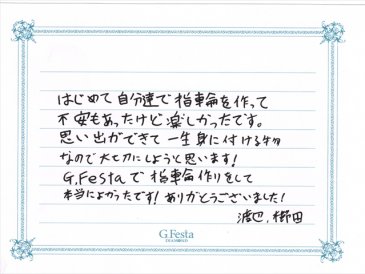 はじめて自分達で指輪を作って
不安もあったけど楽しかったです。
思い出ができて一生身に付ける物
なので大切にしようと思います!
G.Festaで指輪作りをして
本当によかったです!ありがとうございました!
渡辺、櫛田
G.Festa